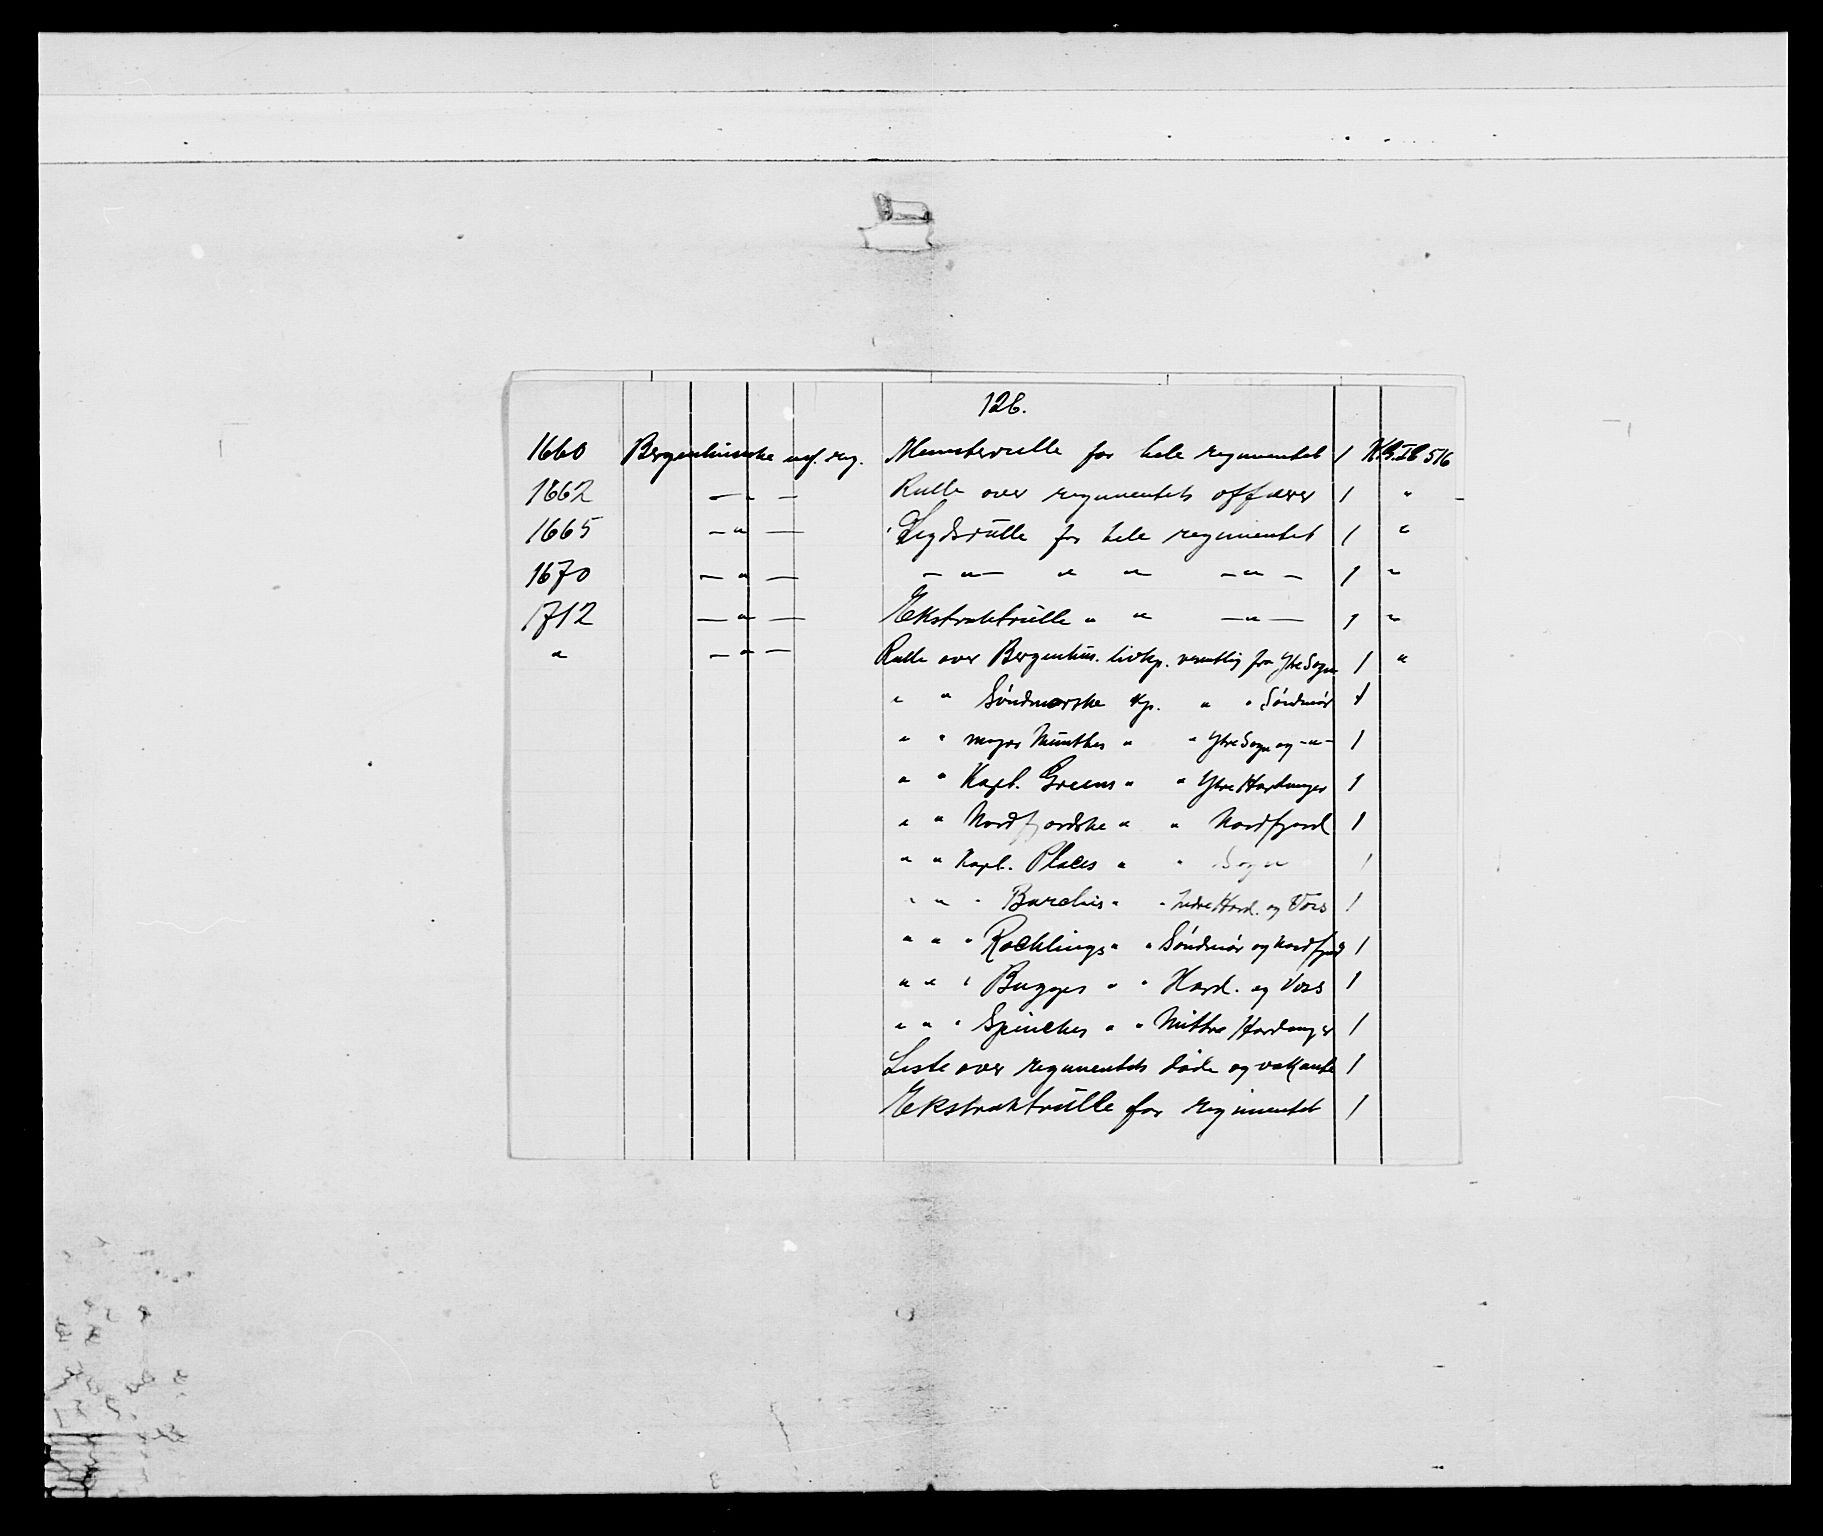 126.
1660 Bergenhusiske inf. reg. Mønsterrulle for hele regimentet 1 516
1662 — " — Rulle over regimentets officerer 1 "
1665 — " — Lægdsrulle for hele regimentet 1 "
1670 — " — — " — " " — " — 1 "
1712 — " — Ekstraktrulle " " — " — 1 "
" — " — Rulle over Bergenhus. livkp. væsentlig fra Ytre Sogn 1 "
" " Söndmørske kp. " " Söndmör 1
" " major Münthes " " Ytre Sogn og —"— 1
" " Kapt. Greens " " Ytre Hardanger 1
" " Nordfjordske " " Nordfjord 1
" " Kapt. Places " " Sogn 1
" " " " " Indre Hard. og Voss 1
" " " Röcklings " " Söndmör og Nordfjord 1
" " " Bugges " " Hard. og Voss 1
" " " " " Mittre Hardanger 1
Liste over regimentets döde og vakante 1
Ekstraktrulle for regimentet 1